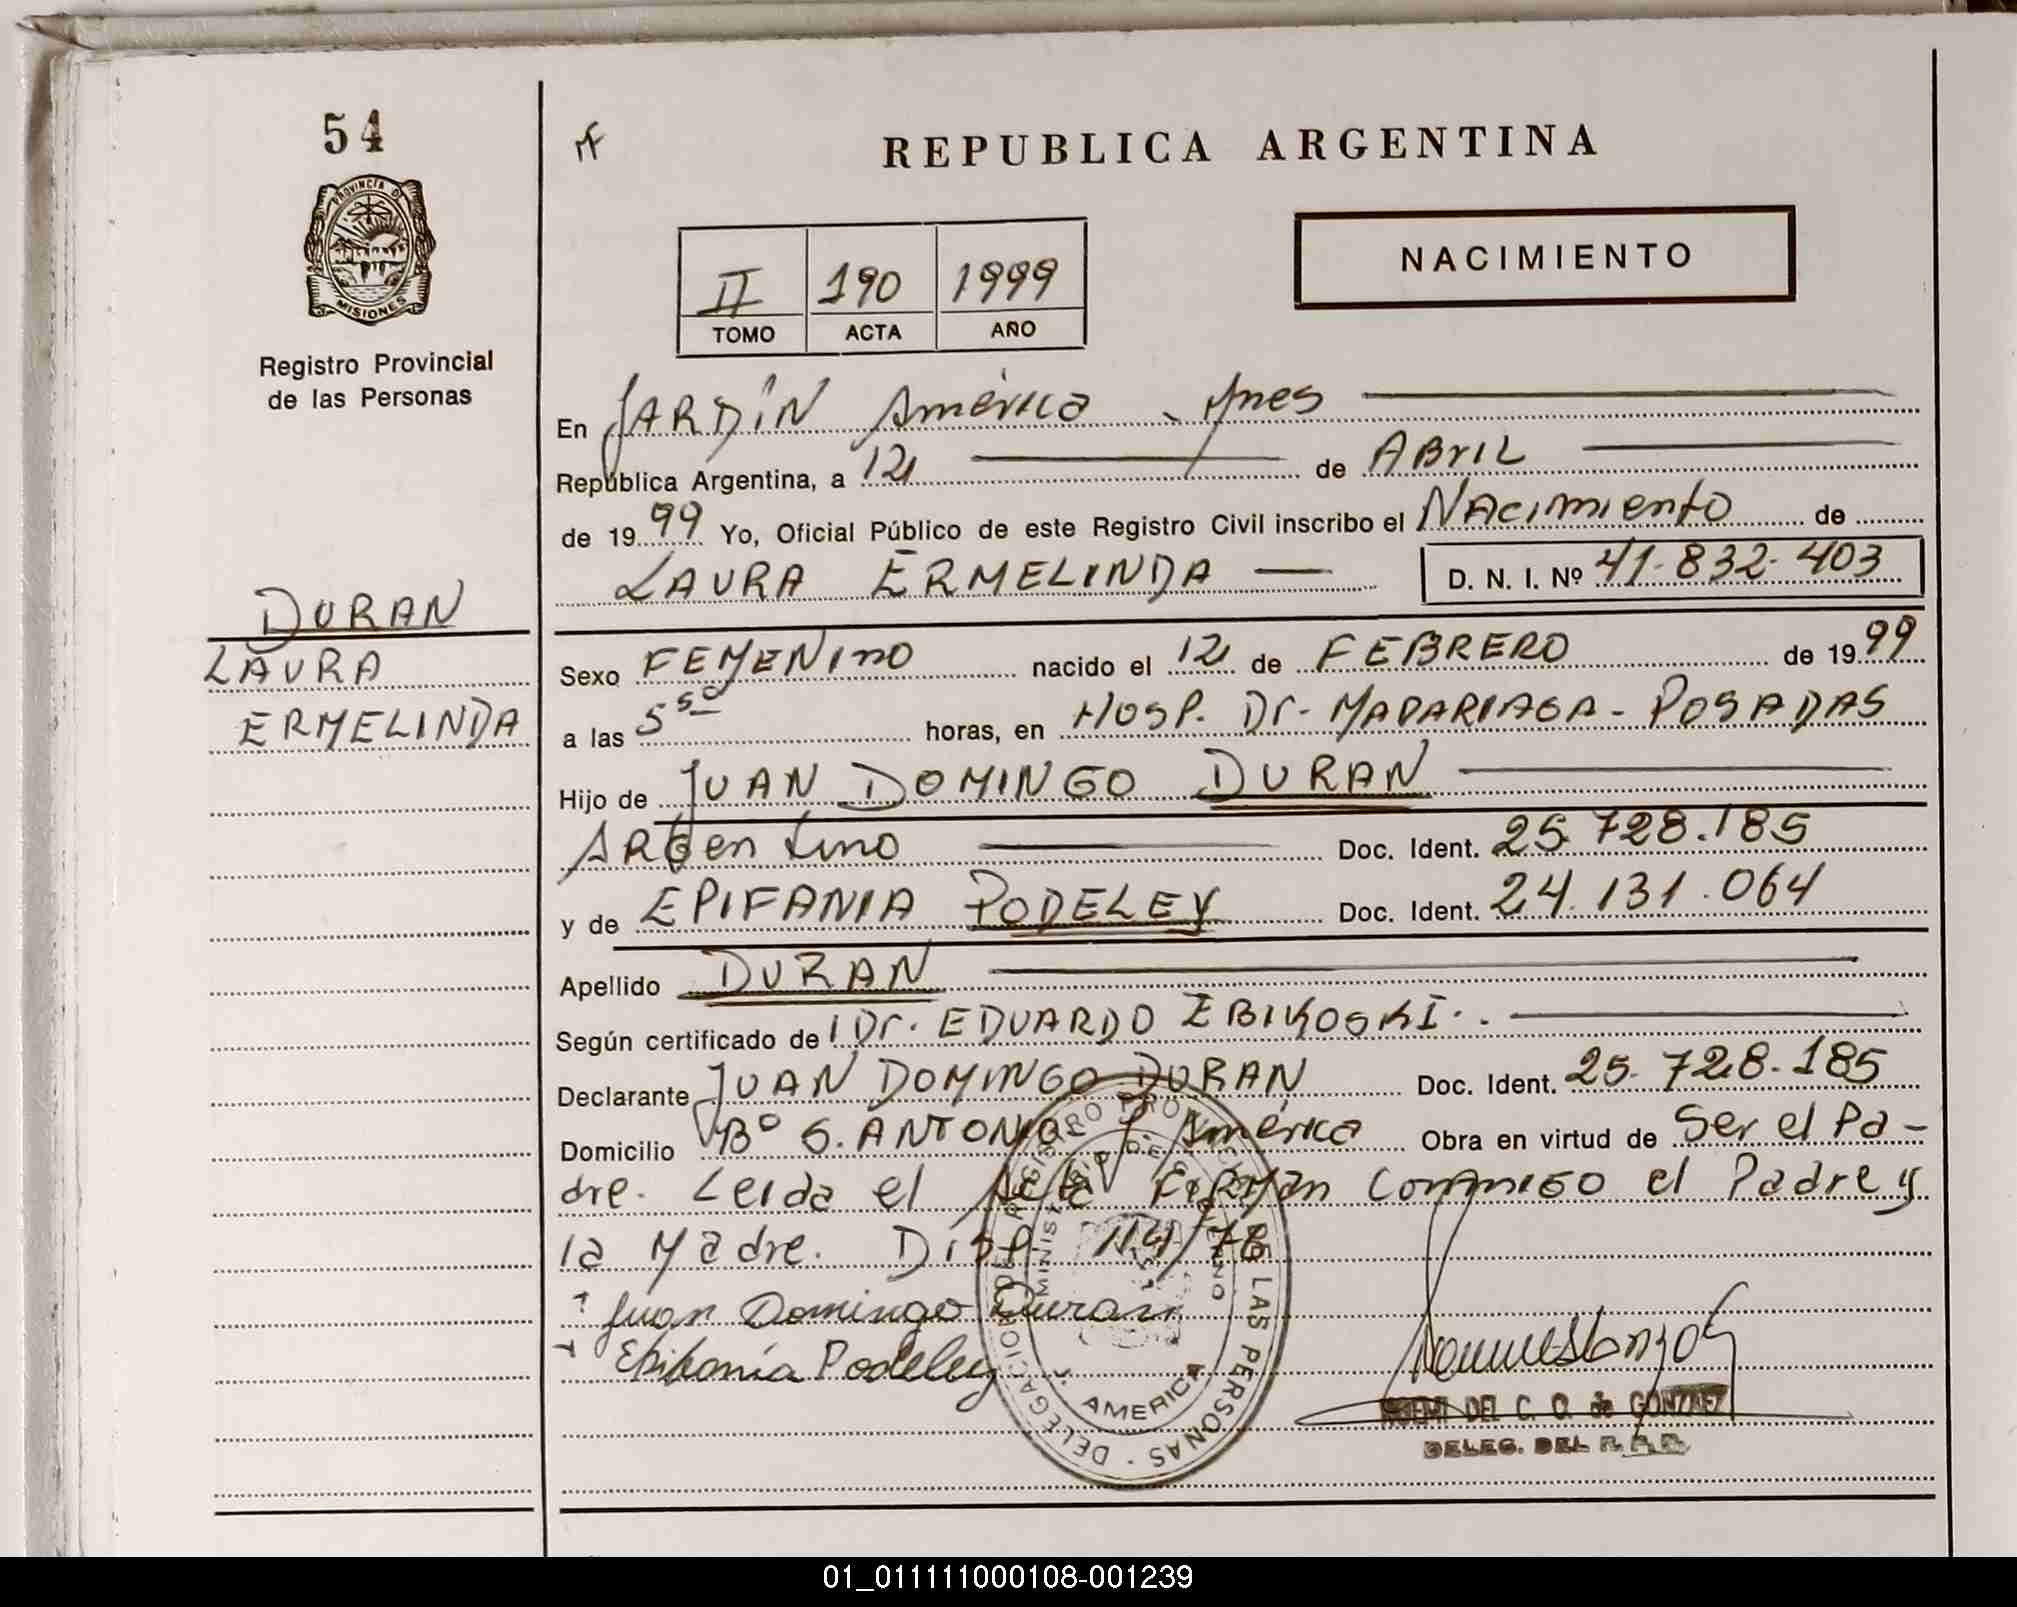 54
REPUBLICA ARGENTINA
PROVINCIA DE
MISIONES
Registro Provincial
de las Personas
II 190 1999
TOMO ACTA AÑO
NACIMIENTO
En JARDIN América - Mnes
República Argentina, a 12 de ABRIL
de 1999 Yo, Oficial Público de este Registro Civil inscribo el NACimiento de
LAURA ERMELINDA D. N. I. Nº 41-832-403
DURAN
LAURA
ERMELINDA
Sexo FEMENINO nacido el 12 de FEBRERO de 1999
a las 5 50 horas, en HOSP. Dr. MADARIAGA - POSADAS
Hijo de JUAN DOMINGO DURAN
ARGentino Doc. Ident. 25.728.185
y de EPIFANIA PODELEY Doc. Ident. 24.131.064
Apellido DURAN
Según certificado de Dr. EDUARDO
Declarante JUAN DOMINGO DURAN Doc. Ident. 25.728.185
Domicilio Bº S. ANTONIO J América Obra en virtud de Ser el Pa-
dre. Leida el Acta FIRMAN Conmigo el Padre y
la Madre. Disp. 114/78
Juan Domingo Duran
Epifania Podeley
REGISTRO PROVINCIAL DE LAS PERSONAS - DELEGACION
MINISTERIO DE GOBIERNO
J. AMERICA
DEL C. O. de GONZALEZ
DELEG. DEL R.P.P.
01_011111000108-001239